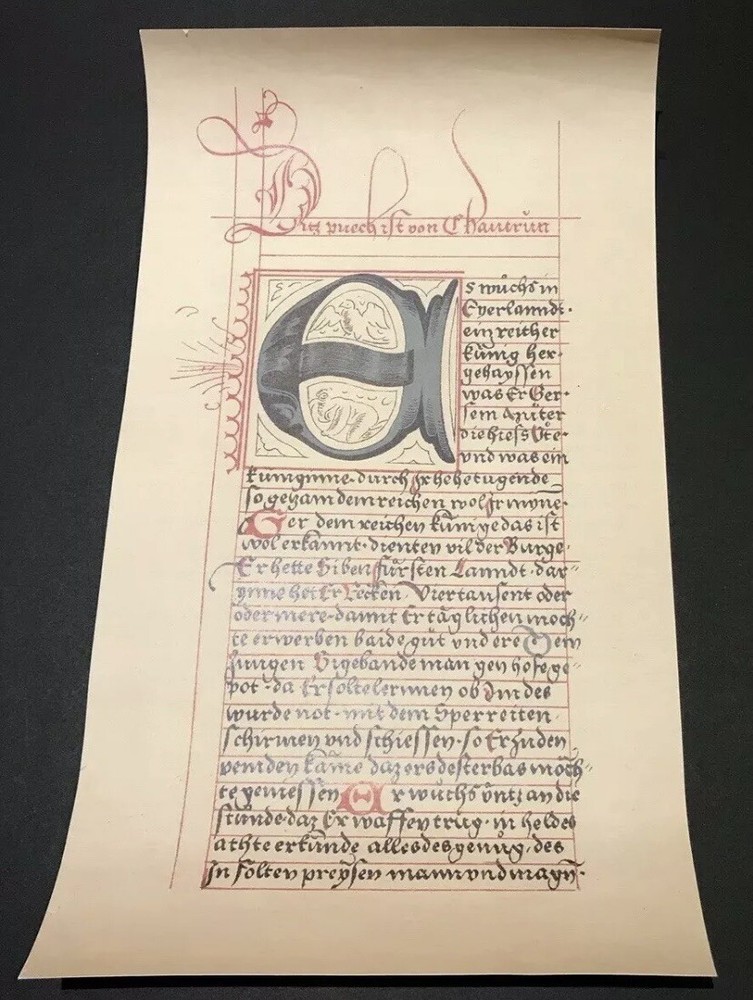 Ditz puech ist von Chautrun
Es wůchs in
Eyerlanndt ·
ein reicher
künig her ·
gehayssen
was Er Ger ·
sein můter
die hiess Ůte ·
vnd was ein
küniginne · durch Ir hohe tugende
so gezam dem reichen wol Ir mÿne ·
Ger dem reichen künige das ist
wol erkannt · dienten vil der Burge ·
Er hette Siben fürsten Lanndt · dar"
ynne het Er Recken · Viertausent oder
oder mere · damit Er täglichen moch"
te erwerben baide gůt vnd ere Dem
Jungen Sigebande man gen hofe ge"
pot · da Er solte lernnen ob Im des
wurde not · mit dem Sper reiten
schirmen vnd schiessen · so Er zu den
veinden käme daz ers dester bas möch"
te geniessen Er wůchs üntz an die
stunde · daz Er waffen trug · in heldes
achte erkunde alles des genůg · des
In solten preÿsen mann vnd magñ ·